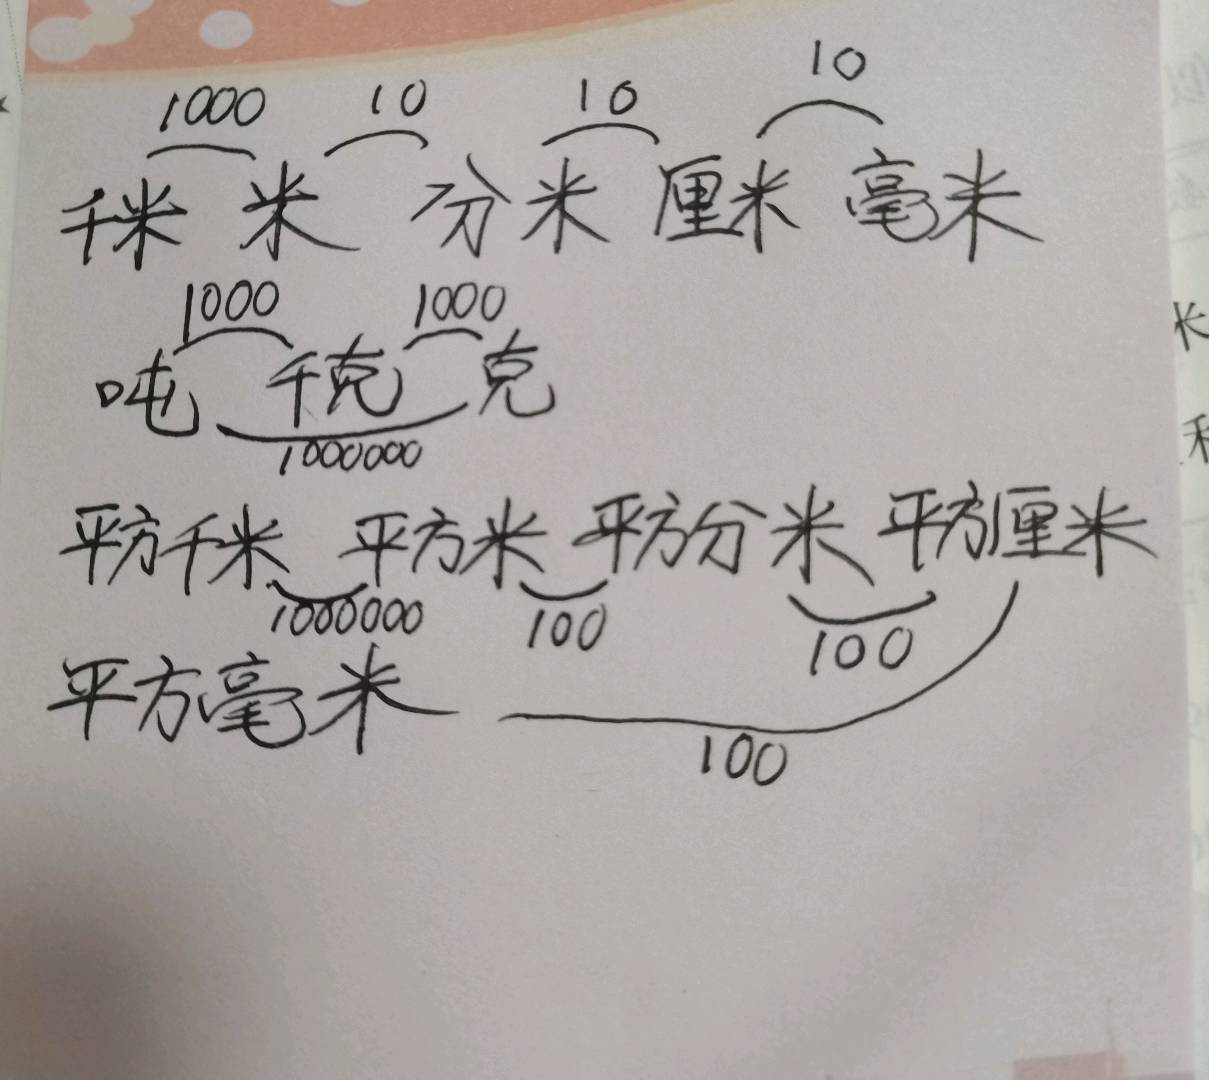 1000 10 10 10
千米 米 分米 厘米 毫米
1000 1000
吨 千克 克
1000000
平方千米 平方米 平方分米 平方厘米
1000000 100 100
平方毫米
100